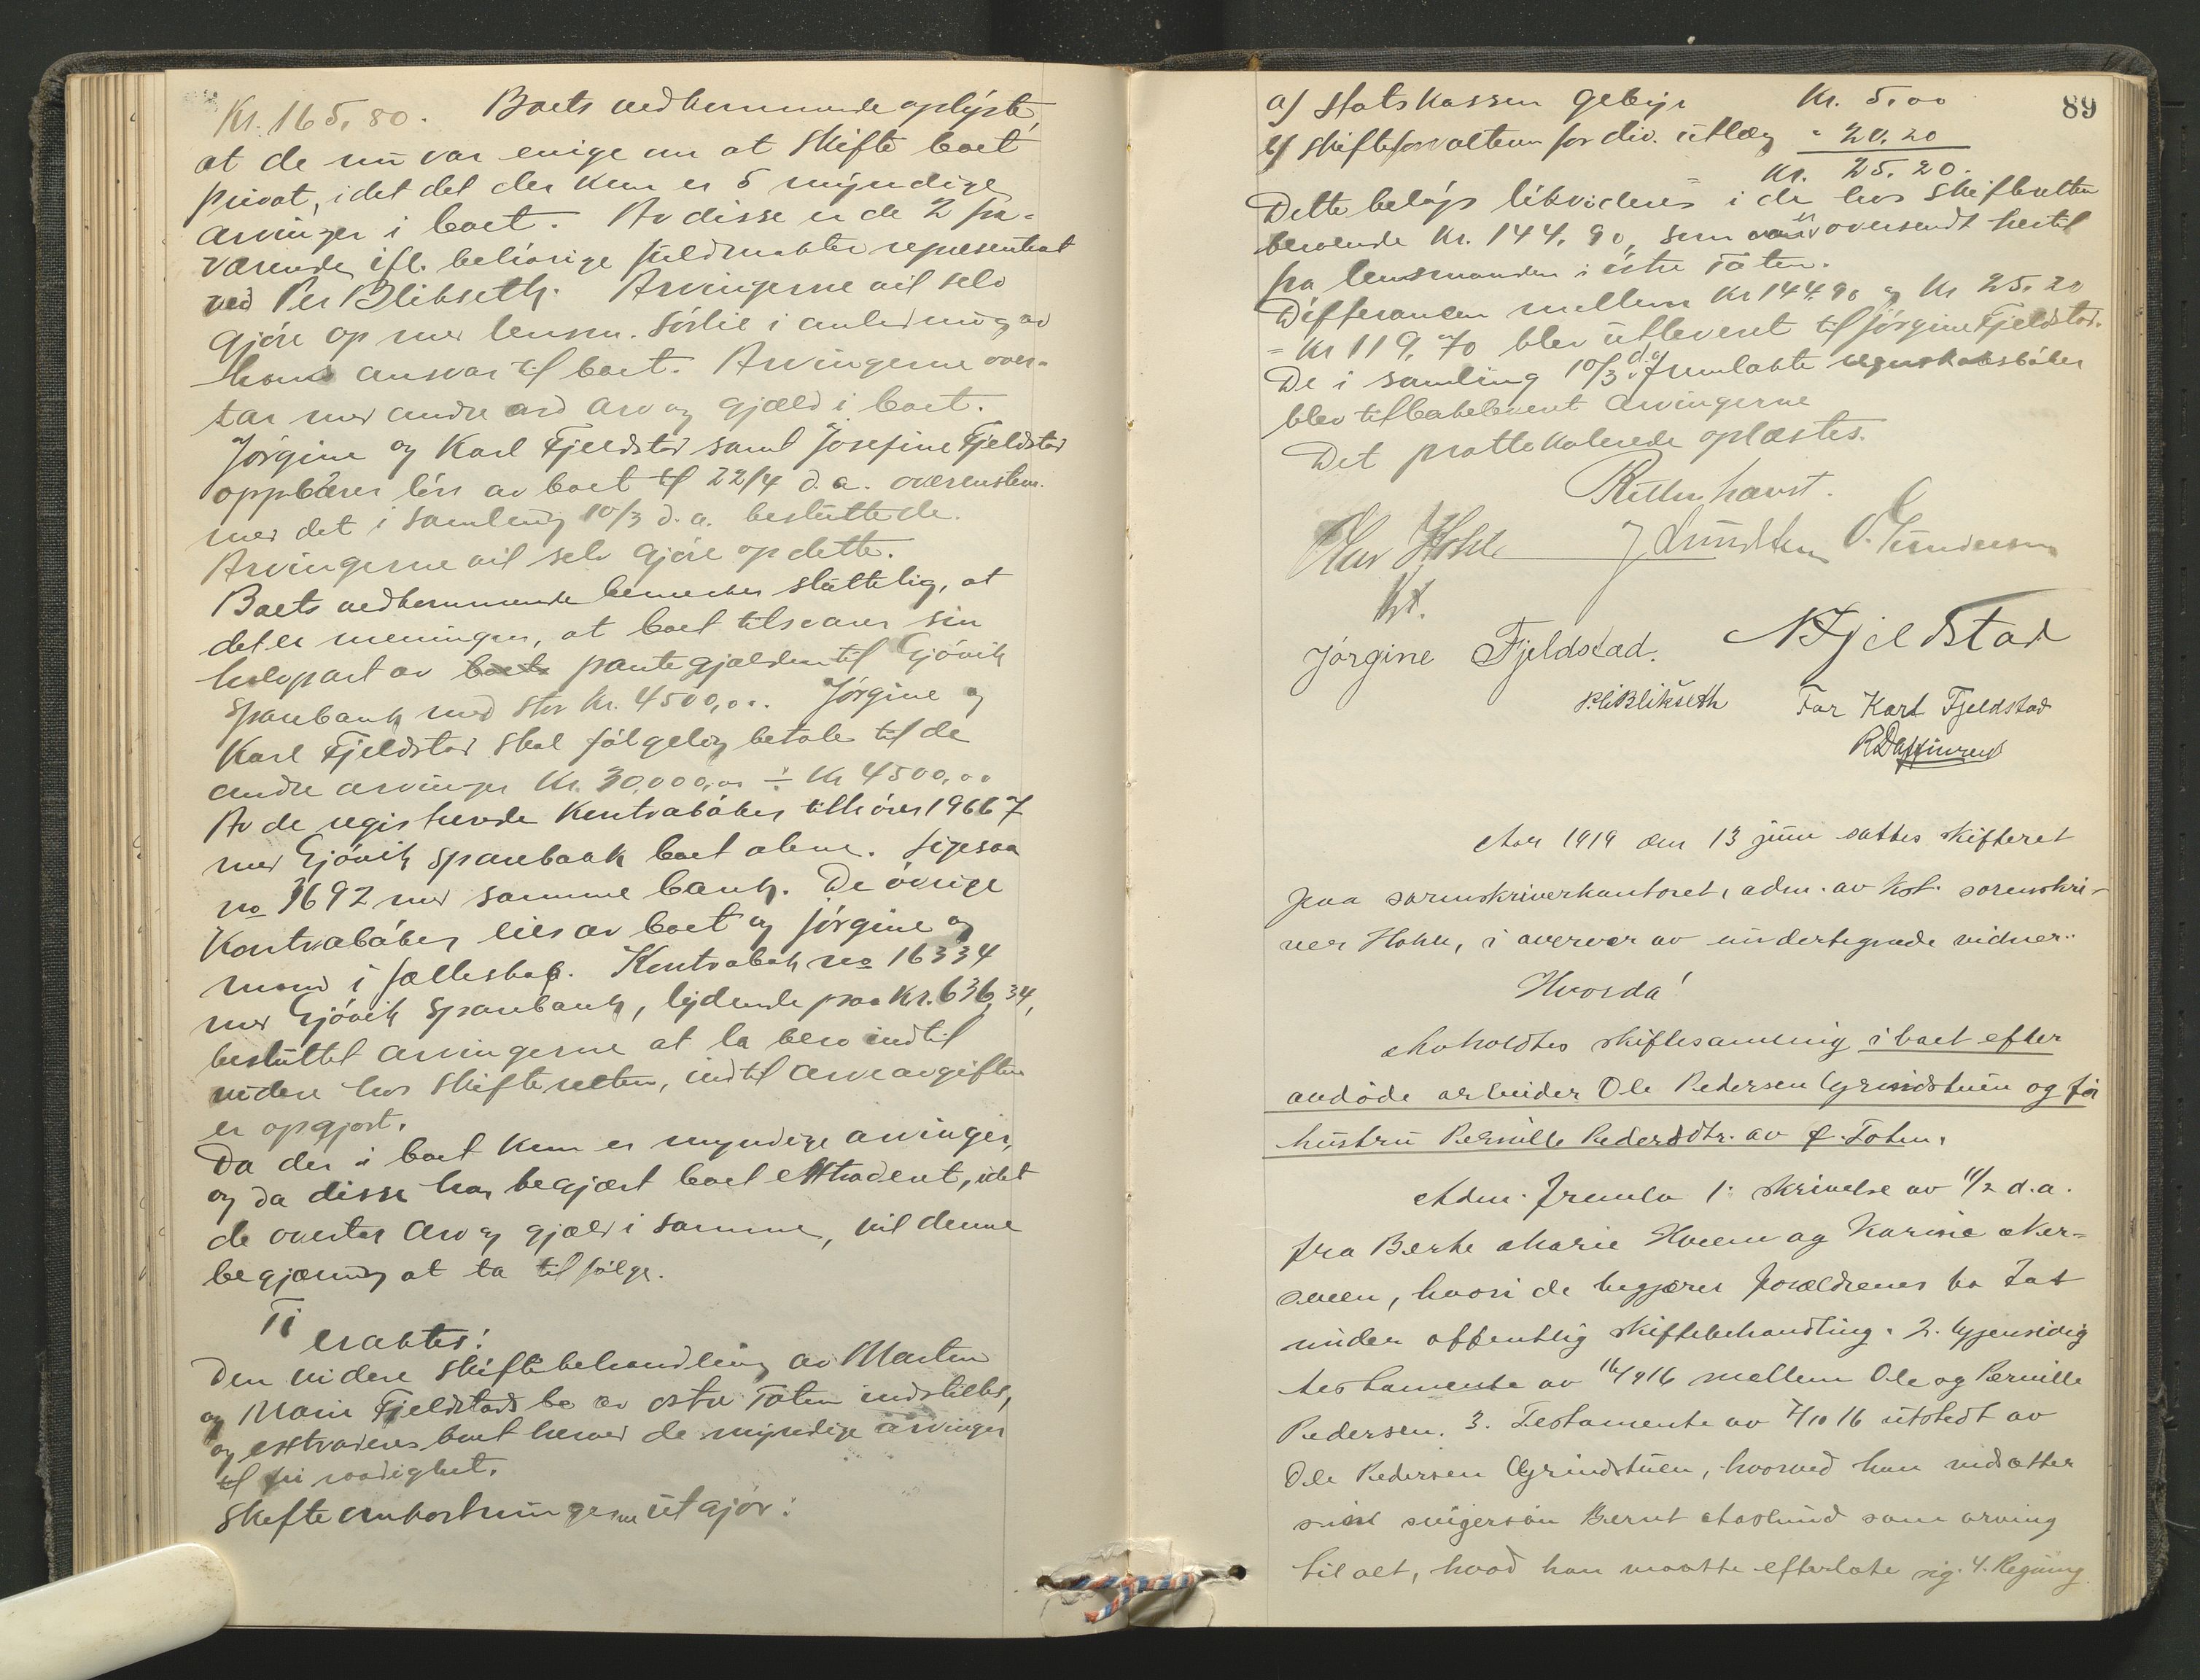 Kr. 165,80. Boets vedkommende oplyste,
at de nu var enige om at skifte boet
privat, idet det der kun er 5 myndige
arvinger i boet. Av disse er de 2 fra-
værende ifl. behørige fuldmakter representert
ved Per Blikseth. Arvingerne vil selv
gjøre op med lensm. Sørlie i anledning av
hans ansvar til boet. Arvingerne over-
tar med andre ord arv og gjæld i boet.
Jørgine og Karl Fjeldstad samt Josefine Fjeldstad
oppbærer løn av boet til 22/4 d.a. overenstem.
med det i samling 10/3 d.a. besluttede.
Arvingerne vil selv gjøre op dette.
Boets vedkommende bemerker sluttelig, at
det er meningen, at boet tilsvarer sin
halvpart av boets pantegjælden til Gjøvik
Sparebank med stor Kr. 4500,00. Jørgine og
Karl Fjeldstad skal følgelig betale til de
andre arvinger Kr. 30,000,00 ÷ Kr 4500,00
Av de registrerede Kontrabøker tilhører 19667
med Gjøvik Sparebank boet alene. Ligesaa
no 3692 med samme bank. De øvrige
Kontrabøker eies av boet og Jørgine og
mand i fælleskap. Kontrabok no 16334
med Gjøvik Sparebank, lydende paa Kr. 636,34,
besluttet arvingerne at la bero indtil
videre hos skifteretten, indtil arveavgiften
er opgjort.
Da der i boet kun er myndige arvinger,
og da disse har begjært boet extradert, idet
de overtar arv og gjæld i samme, vil denne
begjæring at ta til følge.
Ti
eraktes:
Den videre skiftebehandling av Marten
og Marie Fjeldstads bo av østre Toten indstilles,
og extraderes boet herved de myndige arvinger
til fri raadighet.
Skifteomkostningerne utgjør:
89
a) Statskassen gebyr Kr. 5,00
b) Skifteforvalteren for div. utlæg " 20,20
Kr. 25,20.
Dette beløp likvideres i de hos skifteretten
beroende Kr. 144,90, som var oversendt hertil
fra lensmanden i østre Toten.
Differansen mellem Kr 144,90 og Kr 25,20
= Kr 119,70 blev utlevert til Jørgine Fjeldstad.
De i samling 10/3 d.a. fremlakte regnskapsbøker
blev tilbakelevert arvingerne
Det prottekolerede oplæstes.
Retten hævet.
Olav Hohle J Lundsten O. Gundersen
kst.
Jørgine Fjeldstad. N Fjeldstad
P. Blikseth For Karl Fjeldstad
Aar 1919 den 13 juni sattes skifteret
paa sorenskriverkontoret, adm. av kst. sorenskri-
ver Hohle, i overvær av undertegnede vidner.
Hvorda!
Avholdtes skiftesamling i boet efter
avdøde arbeider Ole Pedersen Grindstuen og før
hustru Pernille Pedersdtr. av Ø. Toten.
Adm. fremla 1. skrivelse av 11/2 d.a.
fra Berte Marie Hveem og Karine Aker-
sveen, hvori de begjærer forældrenes bo tat
under offentlig skiftebehandling. 2. Gjensidig
testamente av 16/9 16 mellem Ole og Pernille
Pedersen. 3. Testamente av 7/10 16 utstedt av
Ole Pedersen Grindstuen, hvorved han indsætter
sin svigersøn Bernt Aaslund som arving
til alt, hvad han maatte efterlate sig. 4. Regning